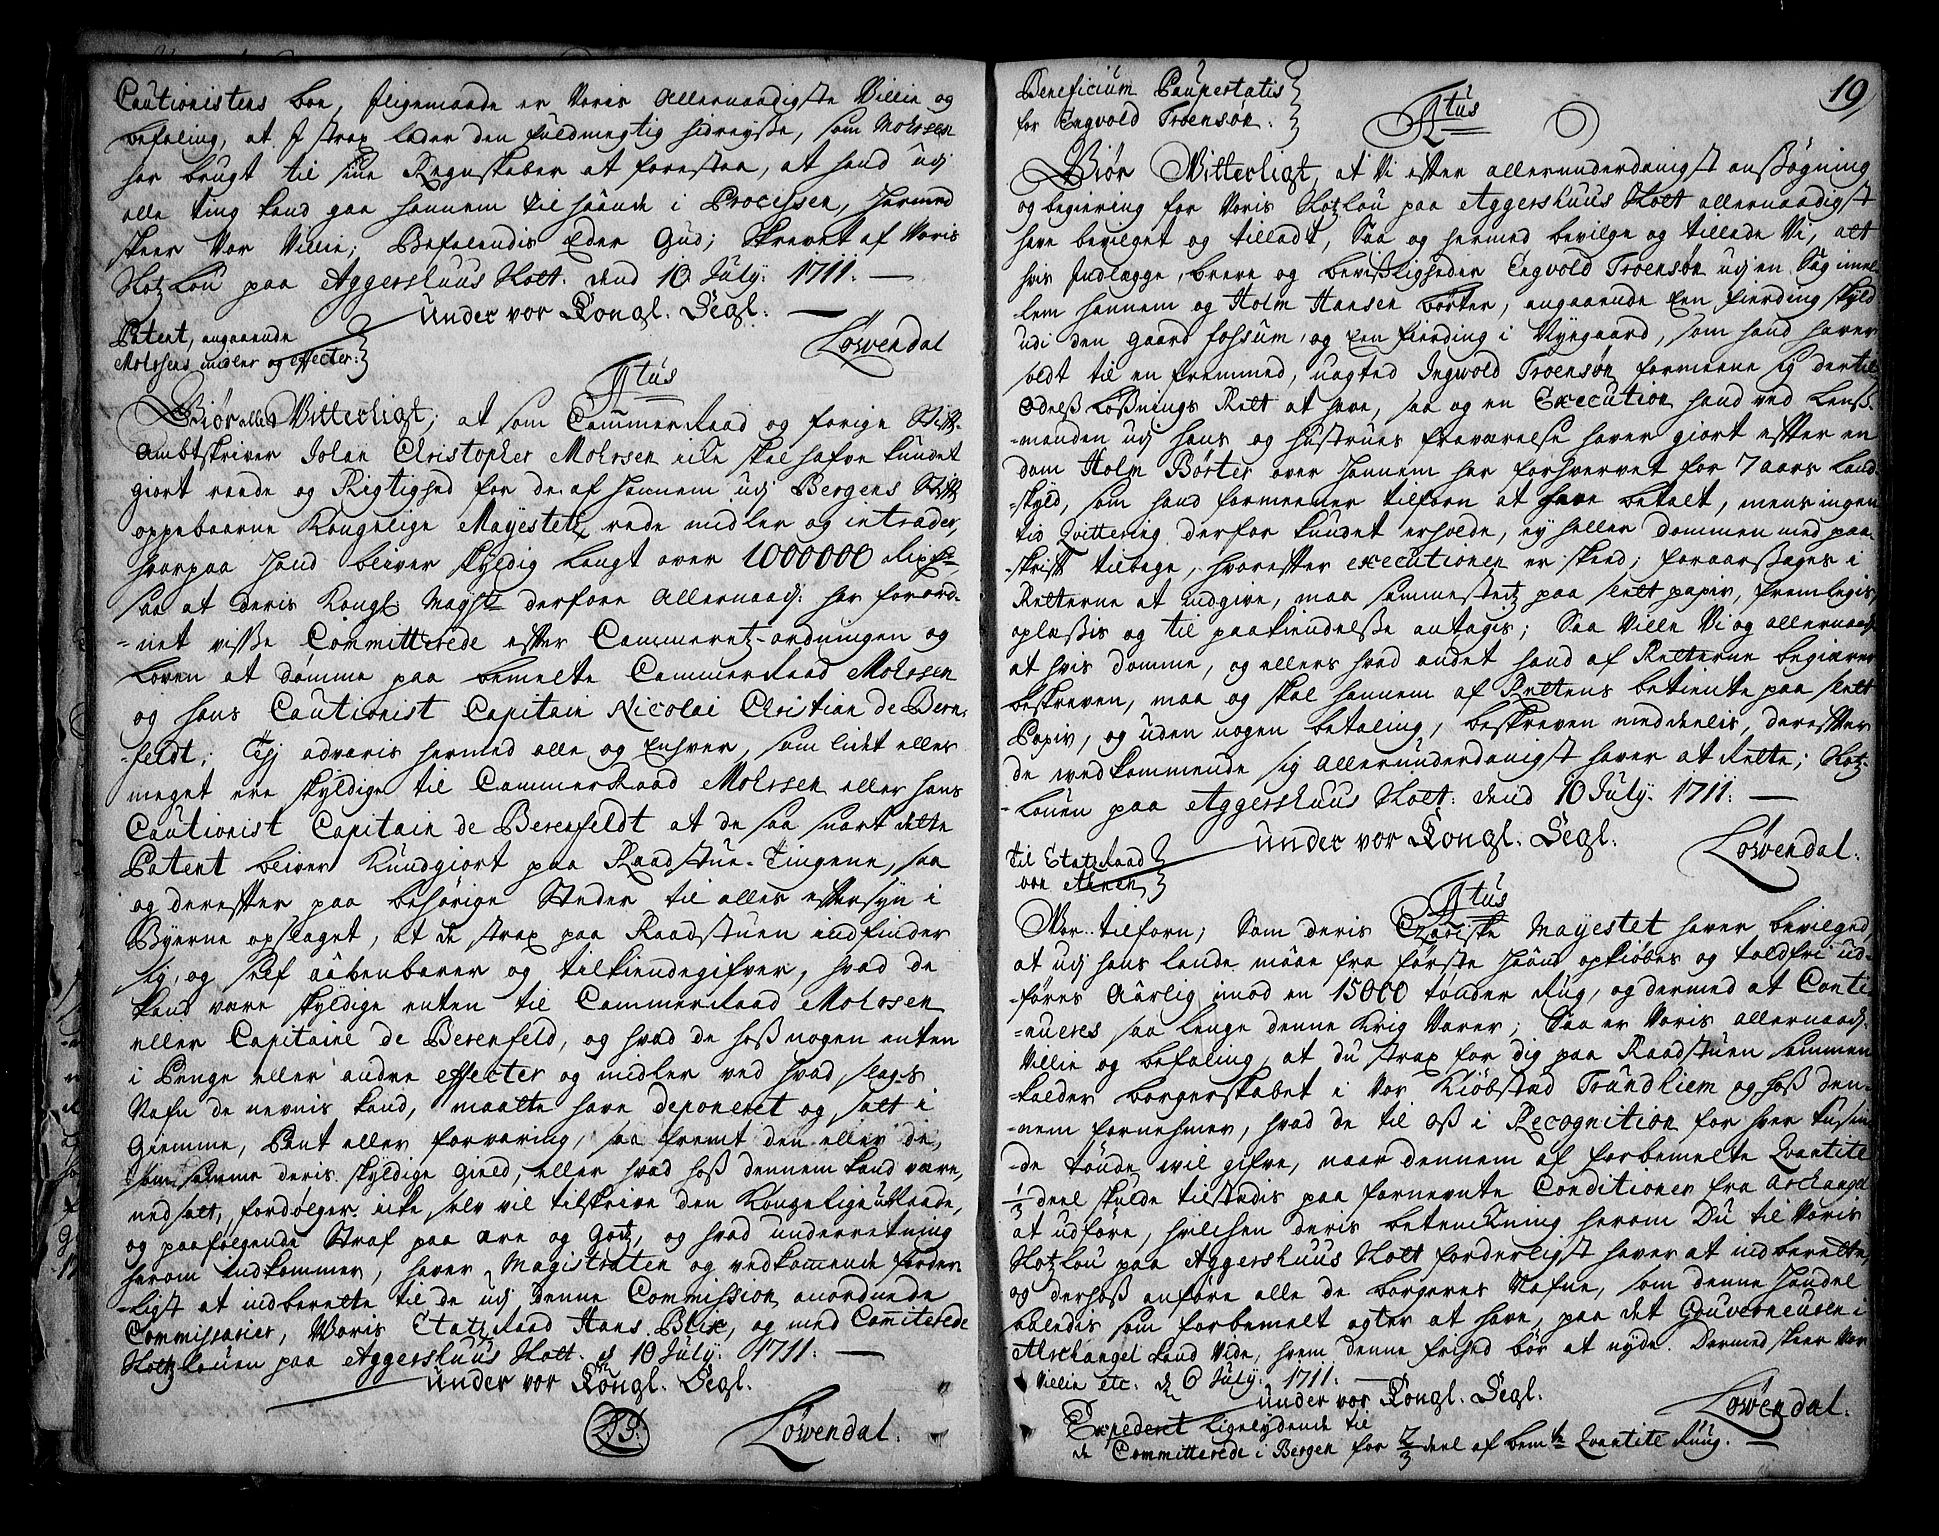 Cautionistens boe, Iligemaade er Voris Allernaadigste Villie og
befaling, at I strax lader den fuldmegtig hidreyse, som Mohrsen
har brugt til sine Regnskaber at forestaa, at hand udj
alle ting kand gaa hannem til haande i Processen, hermed
skeer Vor Villie; Befalendis Eder Gud; Skrevet af Voris
Slotz Lou paa Aggershuus Slott. dend 10 July: 1711. —
Under vor Kongl. Segl. —
Løwendal
Patent, angaaende
Mohrsens midler og effecter:
Ftus
Giør alle Vitterligt; at som CammerRaad og forige Stift-
Ambtskriver Johan Christopher Mohrsen icke skal hafve kundet
giort reede og Rigtighed for de af hannem udj Bergens Stift
oppebaarne Kongelige Mayestetz rede midler og intrader,
hvorpaa hand bliver skyldig langt over 1000000 Rixdr
saa at deris Kongl Mayst derfore Allernaad: har forord-
-net visse Committerede efter Cammeretz-ordningen og
Loven at dømme paa bemelte CammerRaad Mohrsen
og hans Cautionist Capitain Nicolai Christian de Bern-
-feldt; Thj advaris hermed alle og Enhver, som lidet eller
meget ere skyldige til CammerRaad Mohrsen eller hans
Cautionist Capitain de Berenfeldt at de saa snart dette
Patent bliver Kundgiort paa Raadstue-Tingene, saa
og derefter paa behørige Steder til alles eftersyn i
Byerne opslaget, at de strax paa Raadstuen indfinder
sig, og self aabenbarer og tilkiendegifver, hvad de
kand være skyldige enten til CammerRaad Mohrsen
eller Capitaine de Berenfeld, og hvad de hoss nogen enten
i Penge eller andre effecter og midler ved hvad slags
Nafn de nevnis kand, maatte have deponeret og satt i
Giemme, Pant eller forvaring, saa fremt den eller de,
som samme deris skyldige Gield, eller hvad hoss dennem kand være,
nedsatt, fordølger icke selv vil tilskrive den Kongelige Unaade,
og paafølgende Straf paa ære og Gotz, og hvad underretning
herom indkommer, haver Magistraten og vedkommende forder-
-ligst at indberette til de udj denne Commission anordnede
Commissarier, Voris EtatzRaad Hans Blix, og med Comiterede
Slotz Louen paa Aggershuus Slott. d 10 July: 1711. —
Under vor Kongl. Segl.
Løwendal.
19
Beneficium Paupertatis
for Engvold Troensøn.
Ftus
Giør Vitterligt, at Vi efter allerunderdanigst anssøgning
og begiering for Voris Slotz Lou paa Aggershuus Slott allernaadigst
have bevilget og tilladt, Saa og hermed bevilge og tillade Vi, att
hvis Indlægge, breve og bevissligheder Engvold Troensøn udj en Sag imel-
lem hannem og Holm Hansen Børter, angaaende Een fierding skyld
udi den gaard fossum, og Een fierding i Nyegaard, som hand haver
soldt til en fremmed, uagted Ingvold Troensøn formeene sig dertil
Odelss Løssnings Rett at have, saa og en Execution hand ved Lenss-
-manden udj hans og hustrues fraværelse haver giort efter en
dom Holm Børter over hannem har forhvervet for 7 aars land
-skyld, som hand formeener tilforn at have betalt, mens ingen
tid Qvittering derfor kundet erholde, ey heller dommen med paa-
-skrift tilbage, hvorefter executionen er skeed, foraarssages i
Retterne at indgive, maa sammestetz paa slett papir, fremlegis,
oplessis og til paakiendelsse antagis; Saa Ville Vi og allernaad
at hvis domme, og ellers hvad andet hand af Retterne begierer
beskreven, maa og skal hannem af Rettens betiente paa slett
Papir, og uden nogen betaling, beskreven meddeelis, derefter
de wedkommende sig Allerunderdanigst haver at Rette; Slotz-
-Louen paa Aggershuus Slott: dend 10 July. 1711. —
Under vor Kongl. Segl.
Løwendal.
Til EtatzRaad
von Ahnen
Ftus
Vor. tilforn; Som deris Czariske Mayestet haver bevilged
at udj hans lande maae fra første haand opkiøbes og toldfri ud-
-føres Aarlig imod en 15000 tønder Rug, og dermed at Conti-
-nueres saa lenge denne Krig Varer; Saa er Voris allernaad:
Villie og befaling, at du strax for dig paa Raadstuen sammen
-kalder borgerskabet i Vor Kiøbstad Trundhiem og hoss den-
-nem fornehmer, hvad de til oss i Recognition for hver tusin-
-de tønde wil gifve, naar dennem af forbemelte Qvantite
1/3 deel skulde tilstedis paa fornevnte Conditioner fra Archangel
at udføre, hvilchen deris betenckning herom Du til Voris
Slotz Lou paa Aggershuus Slott forderligst haver at indberette,
og derhoss anføre alle de borgeres Nafne, som denne handel
aaledis som forbemelt agter at have, paa det Gouverneuren i
Archangel kand Vide, hvem denne frihed bør at nyde. Dermed skeer Vor
Villie etc. d 6 July. 1711. —
Under vor Kongl. Segl.
Løwendal.
Expederet ligelydende til
de Committerede i Bergen for 2/3 deel af bemte Qvantite Rug. —